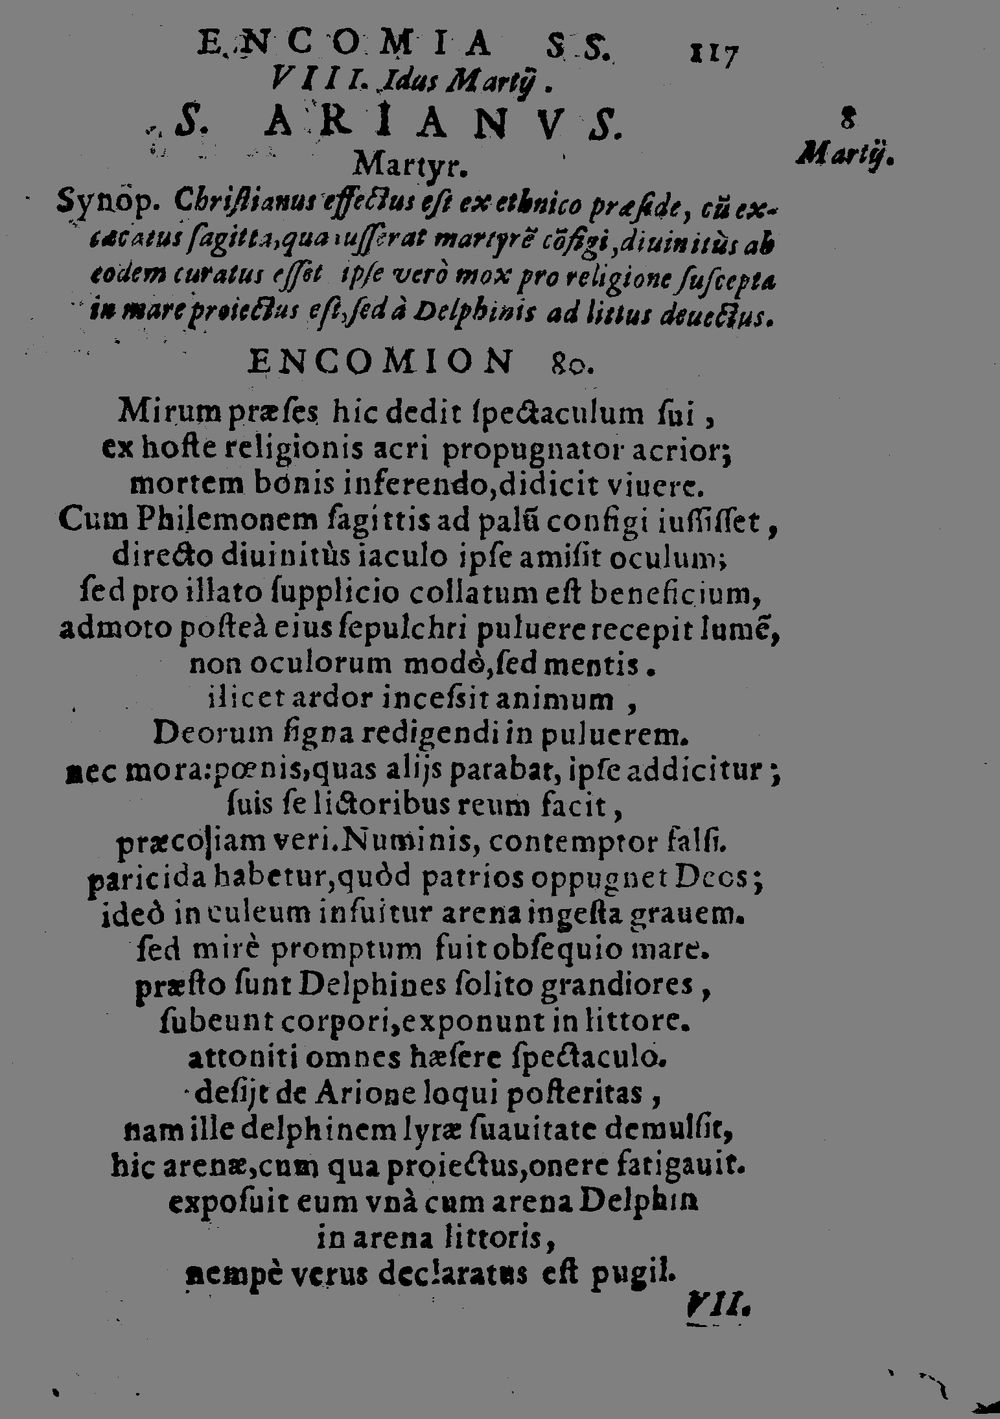 ENCOMIA SS. 117
VIII. Idus Martÿ.
S. ARIANVS.
8
Martÿ.
Martyr.
Synop. Chriſtianus effectus eſt ex ethnico præſide, cũ ex-
cæcatus ſagitta, qua iuſſerat martyrẽ cõfigi, diuinitùs ab
eodem curatus eſſet ipſe verò mox pro religione ſuſcepta
in mare proiectus eſt, ſed à Delphinis ad littus deuectus.
ENCOMION 80.
Mirum præſes hic dedit ſpectaculum ſui,
ex hoſte religionis acri propugnator acrior;
mortem bonis inferendo, didicit viuere.
Cum Philemonem ſagittis ad palũ configi iuſſiſſet,
directo diuinitùs iaculo ipſe amiſit oculum;
ſed pro illato ſupplicio collatum eſt beneficium,
admoto poſteà eius ſepulchri puluere recepit lumẽ,
non oculorum modò, ſed mentis.
ilicet ardor inceſsit animum,
Deorum ſigna redigendi in puluerem.
nec mora: pœnis, quas alijs parabat, ipſe addicitur;
ſuis ſe lictoribus reum facit,
præcoĵiam veri. Numinis, contemptor falſi.
paricida habetur, quòd patrios oppugnet Deos;
ideò in culeum inſuitur arena ingeſta grauem.
ſed mirè promptum fuit obſequio mare.
præſto ſunt Delphines ſolito grandiores,
ſubeunt corpori, exponunt in littore.
attoniti omnes hæſere ſpectaculo.
deſijt de Arione loqui poſteritas,
nam ille delphinem lyræ ſuauitate demulſit,
hic arenæ, cum qua proiectus, onere fatigauit.
expoſuit eum vnà cum arena Delphin
in arena littoris,
nempè verus declaratus eſt pugil.
VII.